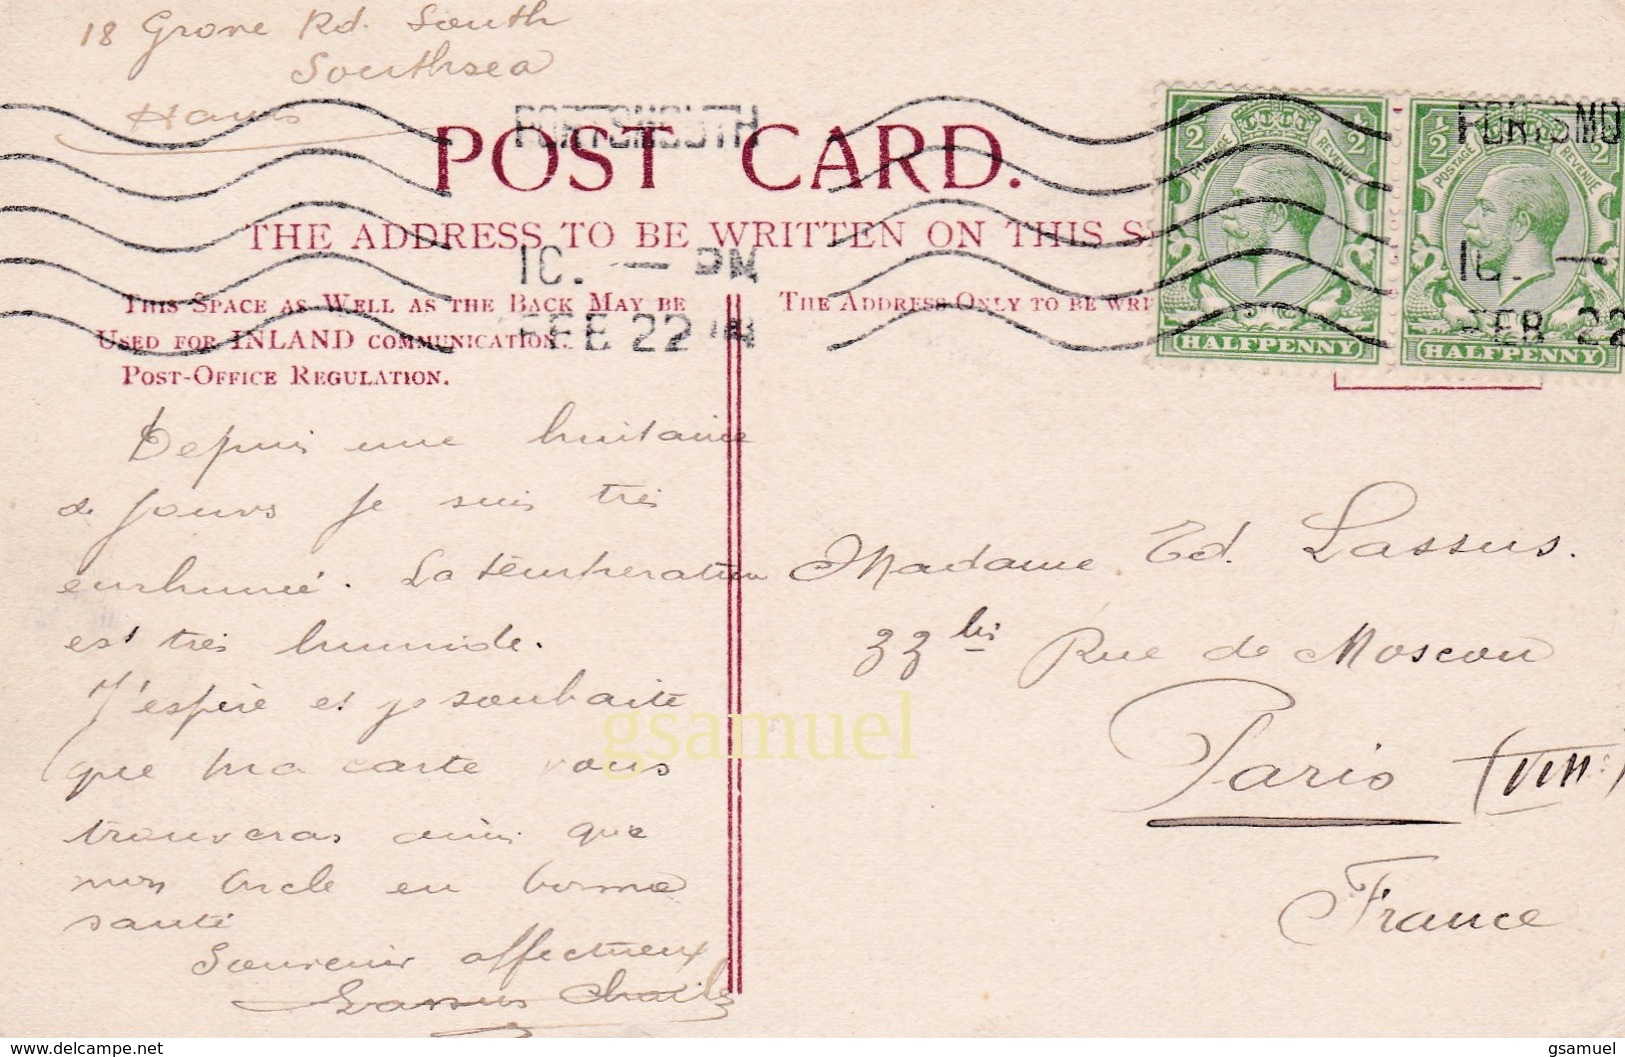 18 Grove Rd. South
Southsea
Hants
PORTSMOUTH
PORTSMO
POST CARD.
THE ADDRESS TO BE WRITTEN ON THIS S
10. — PM
10. —
FEB 22
FEB 22
THIS SPACE AS WELL AS THE BACK MAY BE
USED FOR INLAND COMMUNICATION.
POST-OFFICE REGULATION.
THE ADDRESS ONLY TO BE WRI
½ ½
POSTAGE REVENUE
HALFPENNY
½ ½
POSTAGE REVENUE
HALFPENNY
Depuis une huitaine
de jours je suis très
enrhumé. La température
est très humide.
J'espère et je souhaite
que ma carte vous
trouveras ainsi que
mon Oncle en bonne
santé
Souvenir affectueux
Lassus Charles
Madame Ed. Lassus.
33 bis Rue de Moscou
Paris (VIII)
France
gsamuel
www.delcampe.net
gsamuel